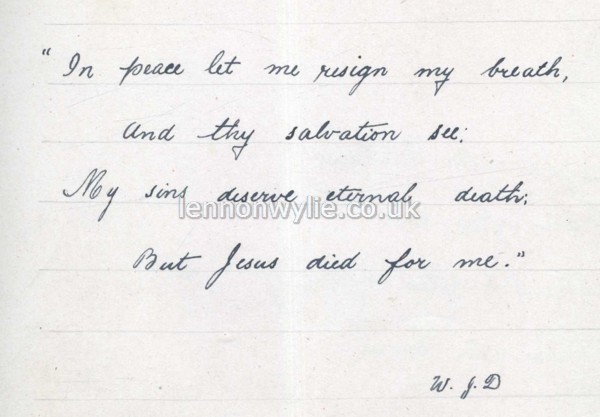 "In peace let me resign my breath,
And thy salvation see;
My sins deserve eternal death;
lennonwylie.co.uk
But Jesus died for me."
W. J. D